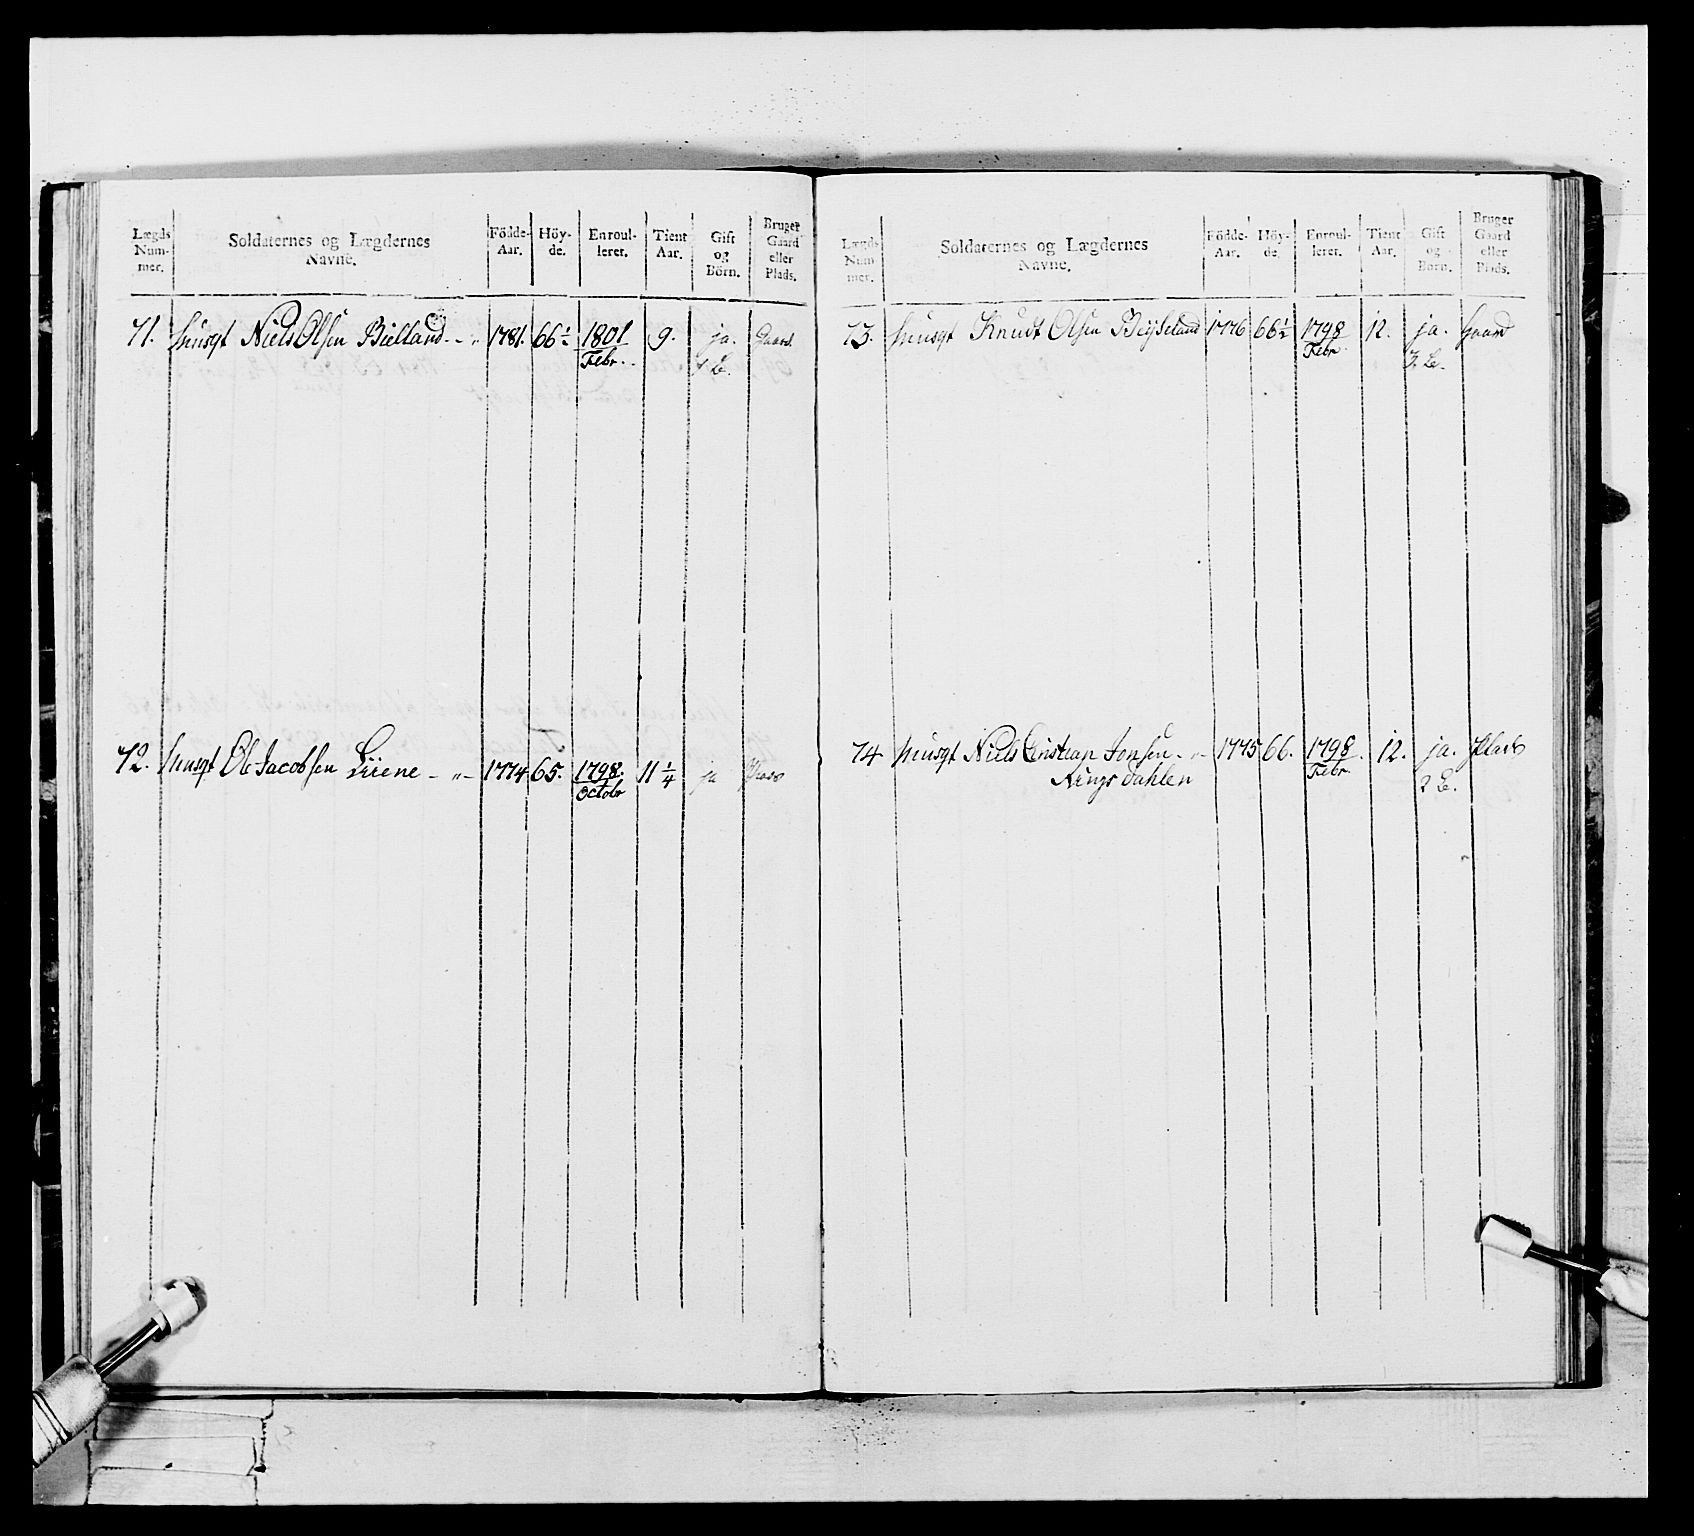 Lægds Num- mer. Soldaternes og Lægdernes Navne. Födde- Aar. Höy- de. Enroul- leret. Tient Aar. Gift og Börn. Bruger Gaard eller Plads.
71. Musqt Niels Olsen Bielland - " 1781. 66 1/2 1801 9. ja. Gaard.
Febr.
72. Musqt Ole Jacobsen Liiene - " - 1774 65. 1798. 11 1/4 ja Plads
Octobr
Lægds Num- mer. Soldaternes og Lægdernes Navne. Födde- Aar. Höy- de. Enroul- leret. Tient Aar. Gift og Börn. Bruger Gaard eller Plads.
73. Musqt Knudt Olsen 1776 66 1/2 1798 12. ja. Gaard
Febr.
74 Musqt Niels Cristian Jonsen - " - 1775 66. 1798. 12. ja. Plads
Ringsdahlen Febr. 2 B.